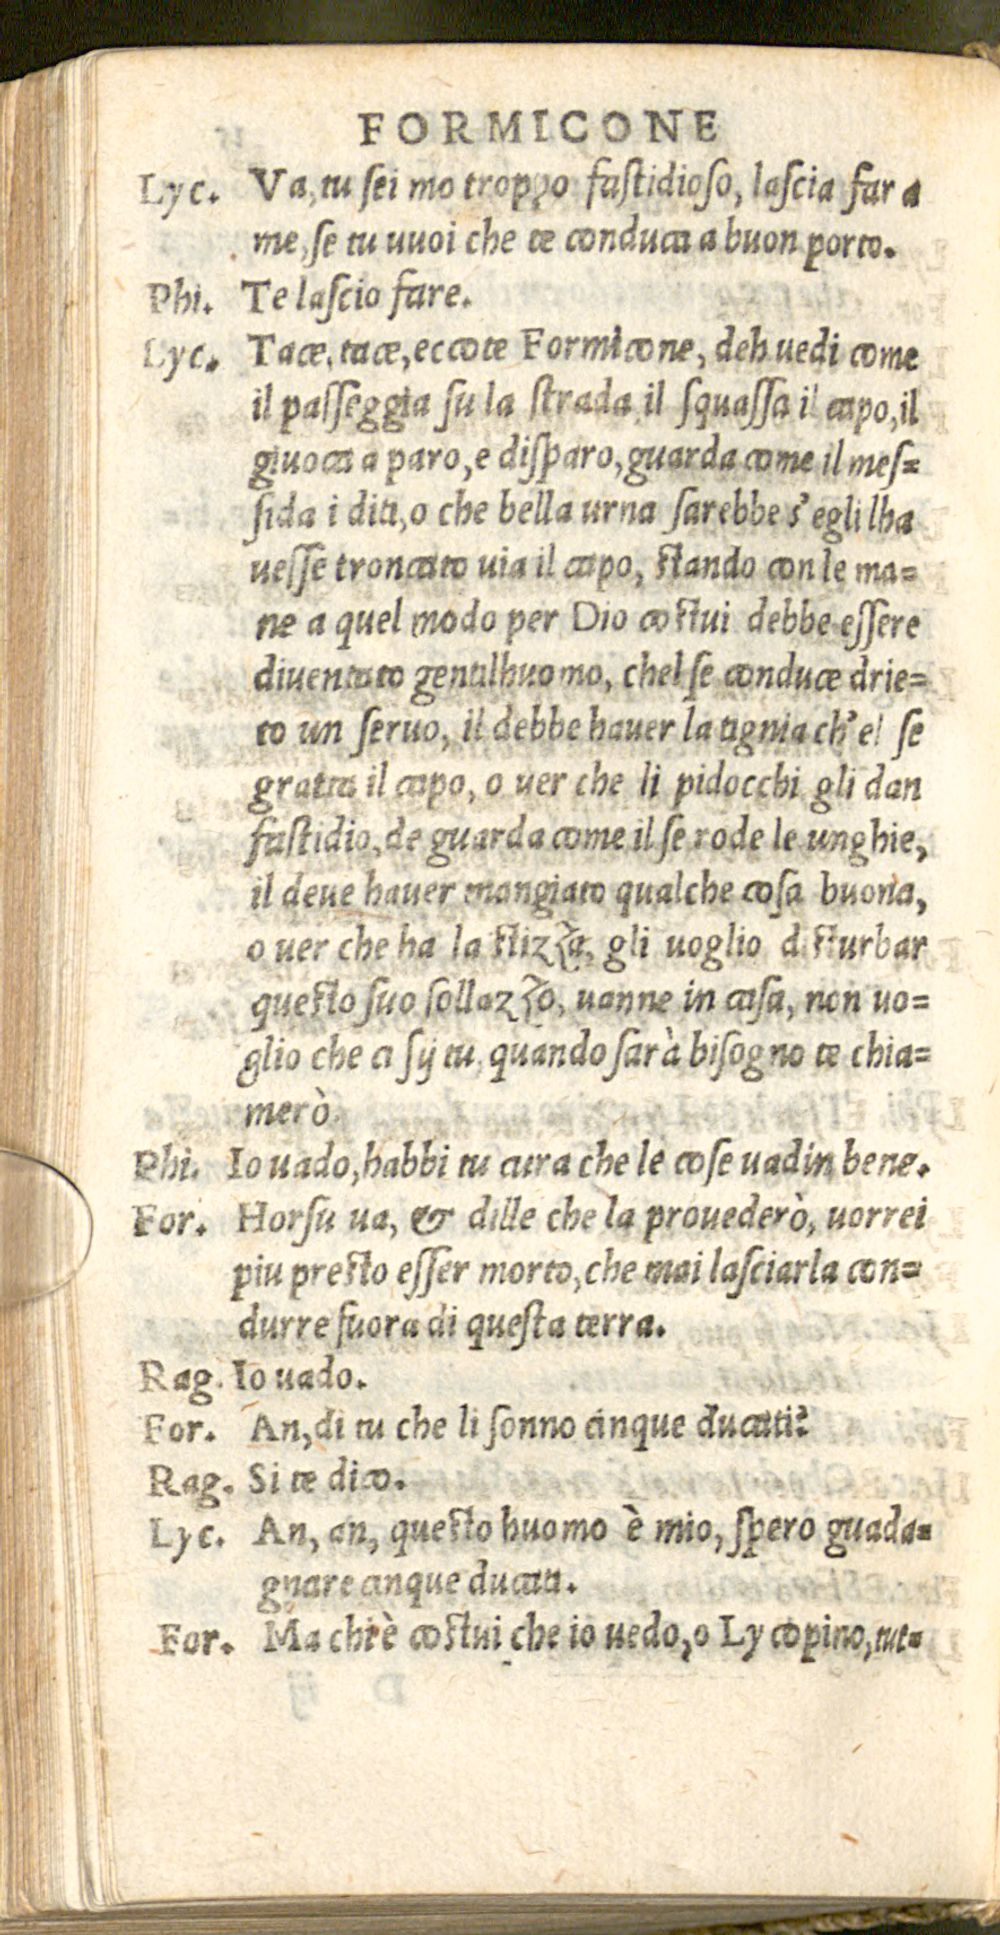 FORMICONE
Lyc. Va, tu sei mo troppo fastidioso, lascia far a
me, se tu uuoi che te conduca a buon porto.
Phi. Te lascio fare.
Lyc. Tace, tace, eccote Formicone, deh uedi come
il passeggia su la strada, il squassa il capo, il
giuoca a paro, e disparo, guarda come il mes=
sida i diti, o che bella urna sarebbe s'egli lha
uesse troncato uia il capo, stando con le ma=
ne a quel modo per Dio costui debbe essere
diuentato gentilhuomo, chel se conduce drie=
to un seruo, il debbe hauer la tignia ch'el se
gratta il capo, o uer che li pidocchi gli dan
fastidio, de guarda come il se rode le unghie,
il deue hauer mangiato qualche cosa buona,
o uer che ha la stizza, gli uoglio disturbar
questo suo sollazzo, uanne in casa, non uo=
glio che ci sij tu, quando sarà bisogno te chia=
merò.
Phi. Io uado, habbi tu cura che le cose uadin bene.
For. Horsu ua, & dille che la prouederò, uorrei
piu presto esser morto, che mai lasciarla con=
durre fuora di questa terra.
Rag. Io uado.
For. An, di tu che li sonno cinque ducatti?
Rag. Si te dico.
Lyc. An, an, questo huomo è mio, spero guada=
gnare cinque ducati.
For. Ma chi è costui che io uedo, o Lycopino, tut=